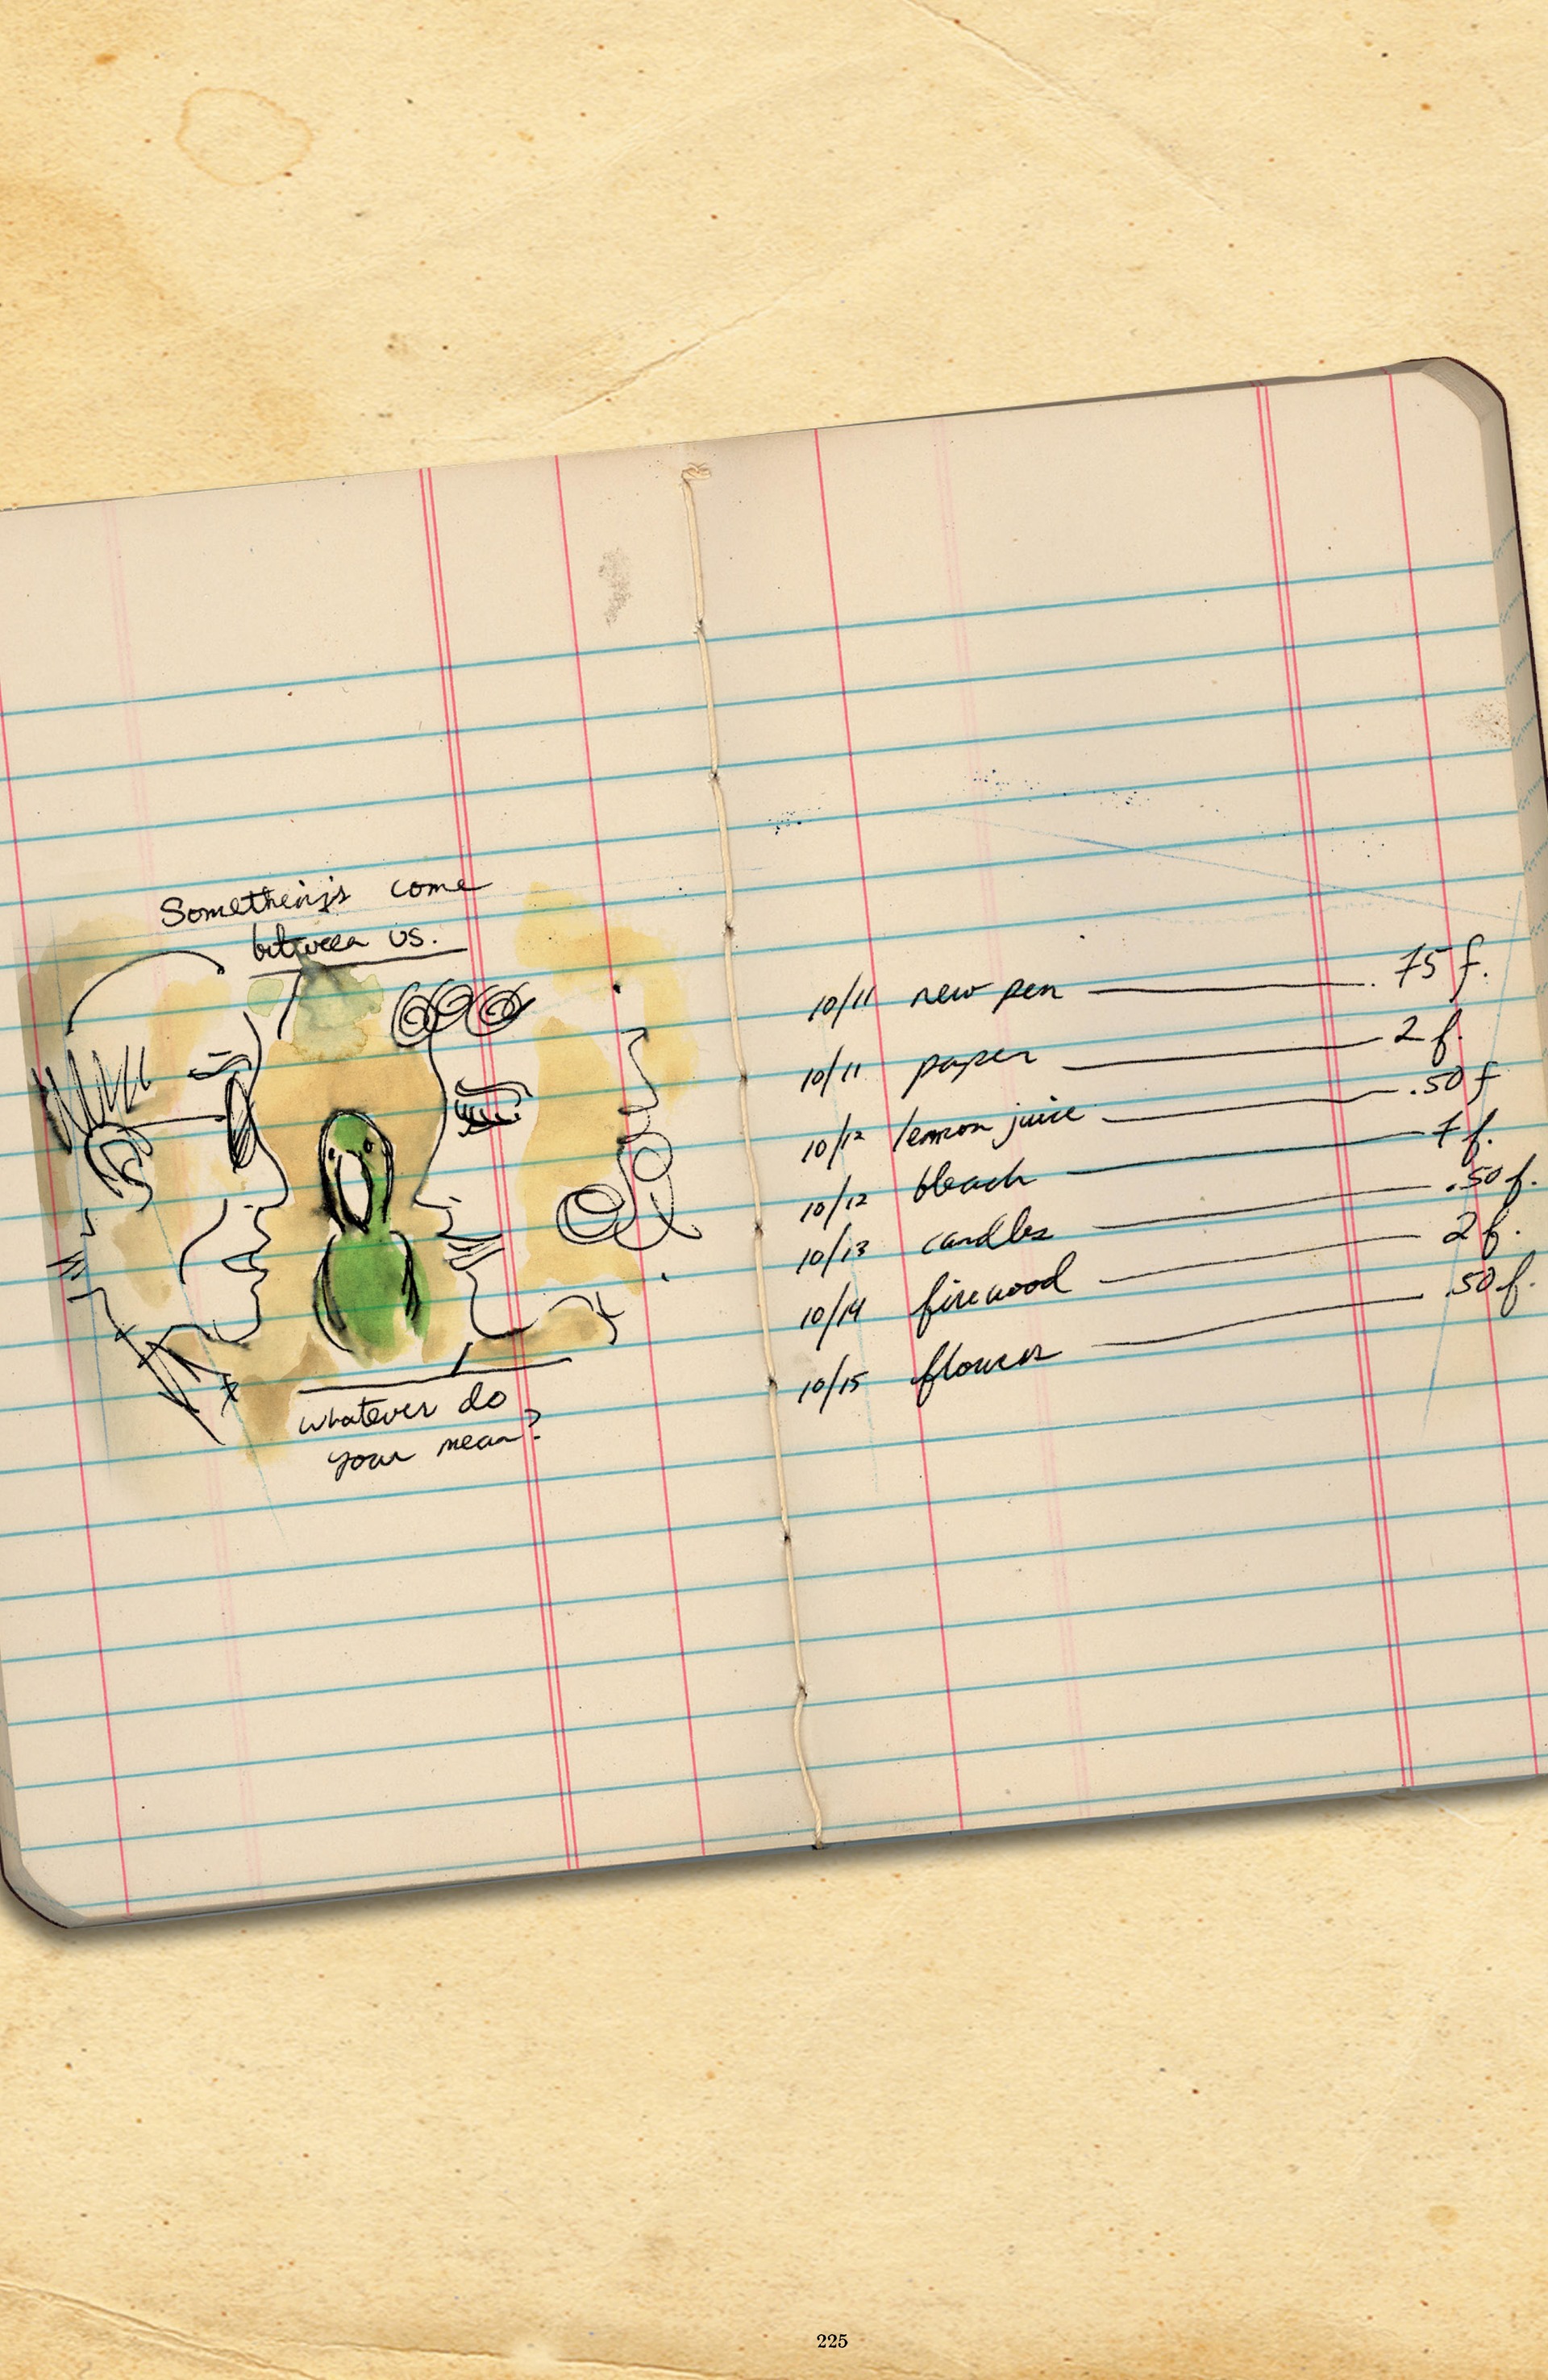 Something's come
between us.
whatever do
your mean?
10/11 new pen .75 f.
10/11 paper 2 f.
10/12 lemon juice .50 f
10/12 bleach 1 f.
10/13 candles .50 f.
10/14 firewood 2 f.
10/15 flowers .50 f.
225